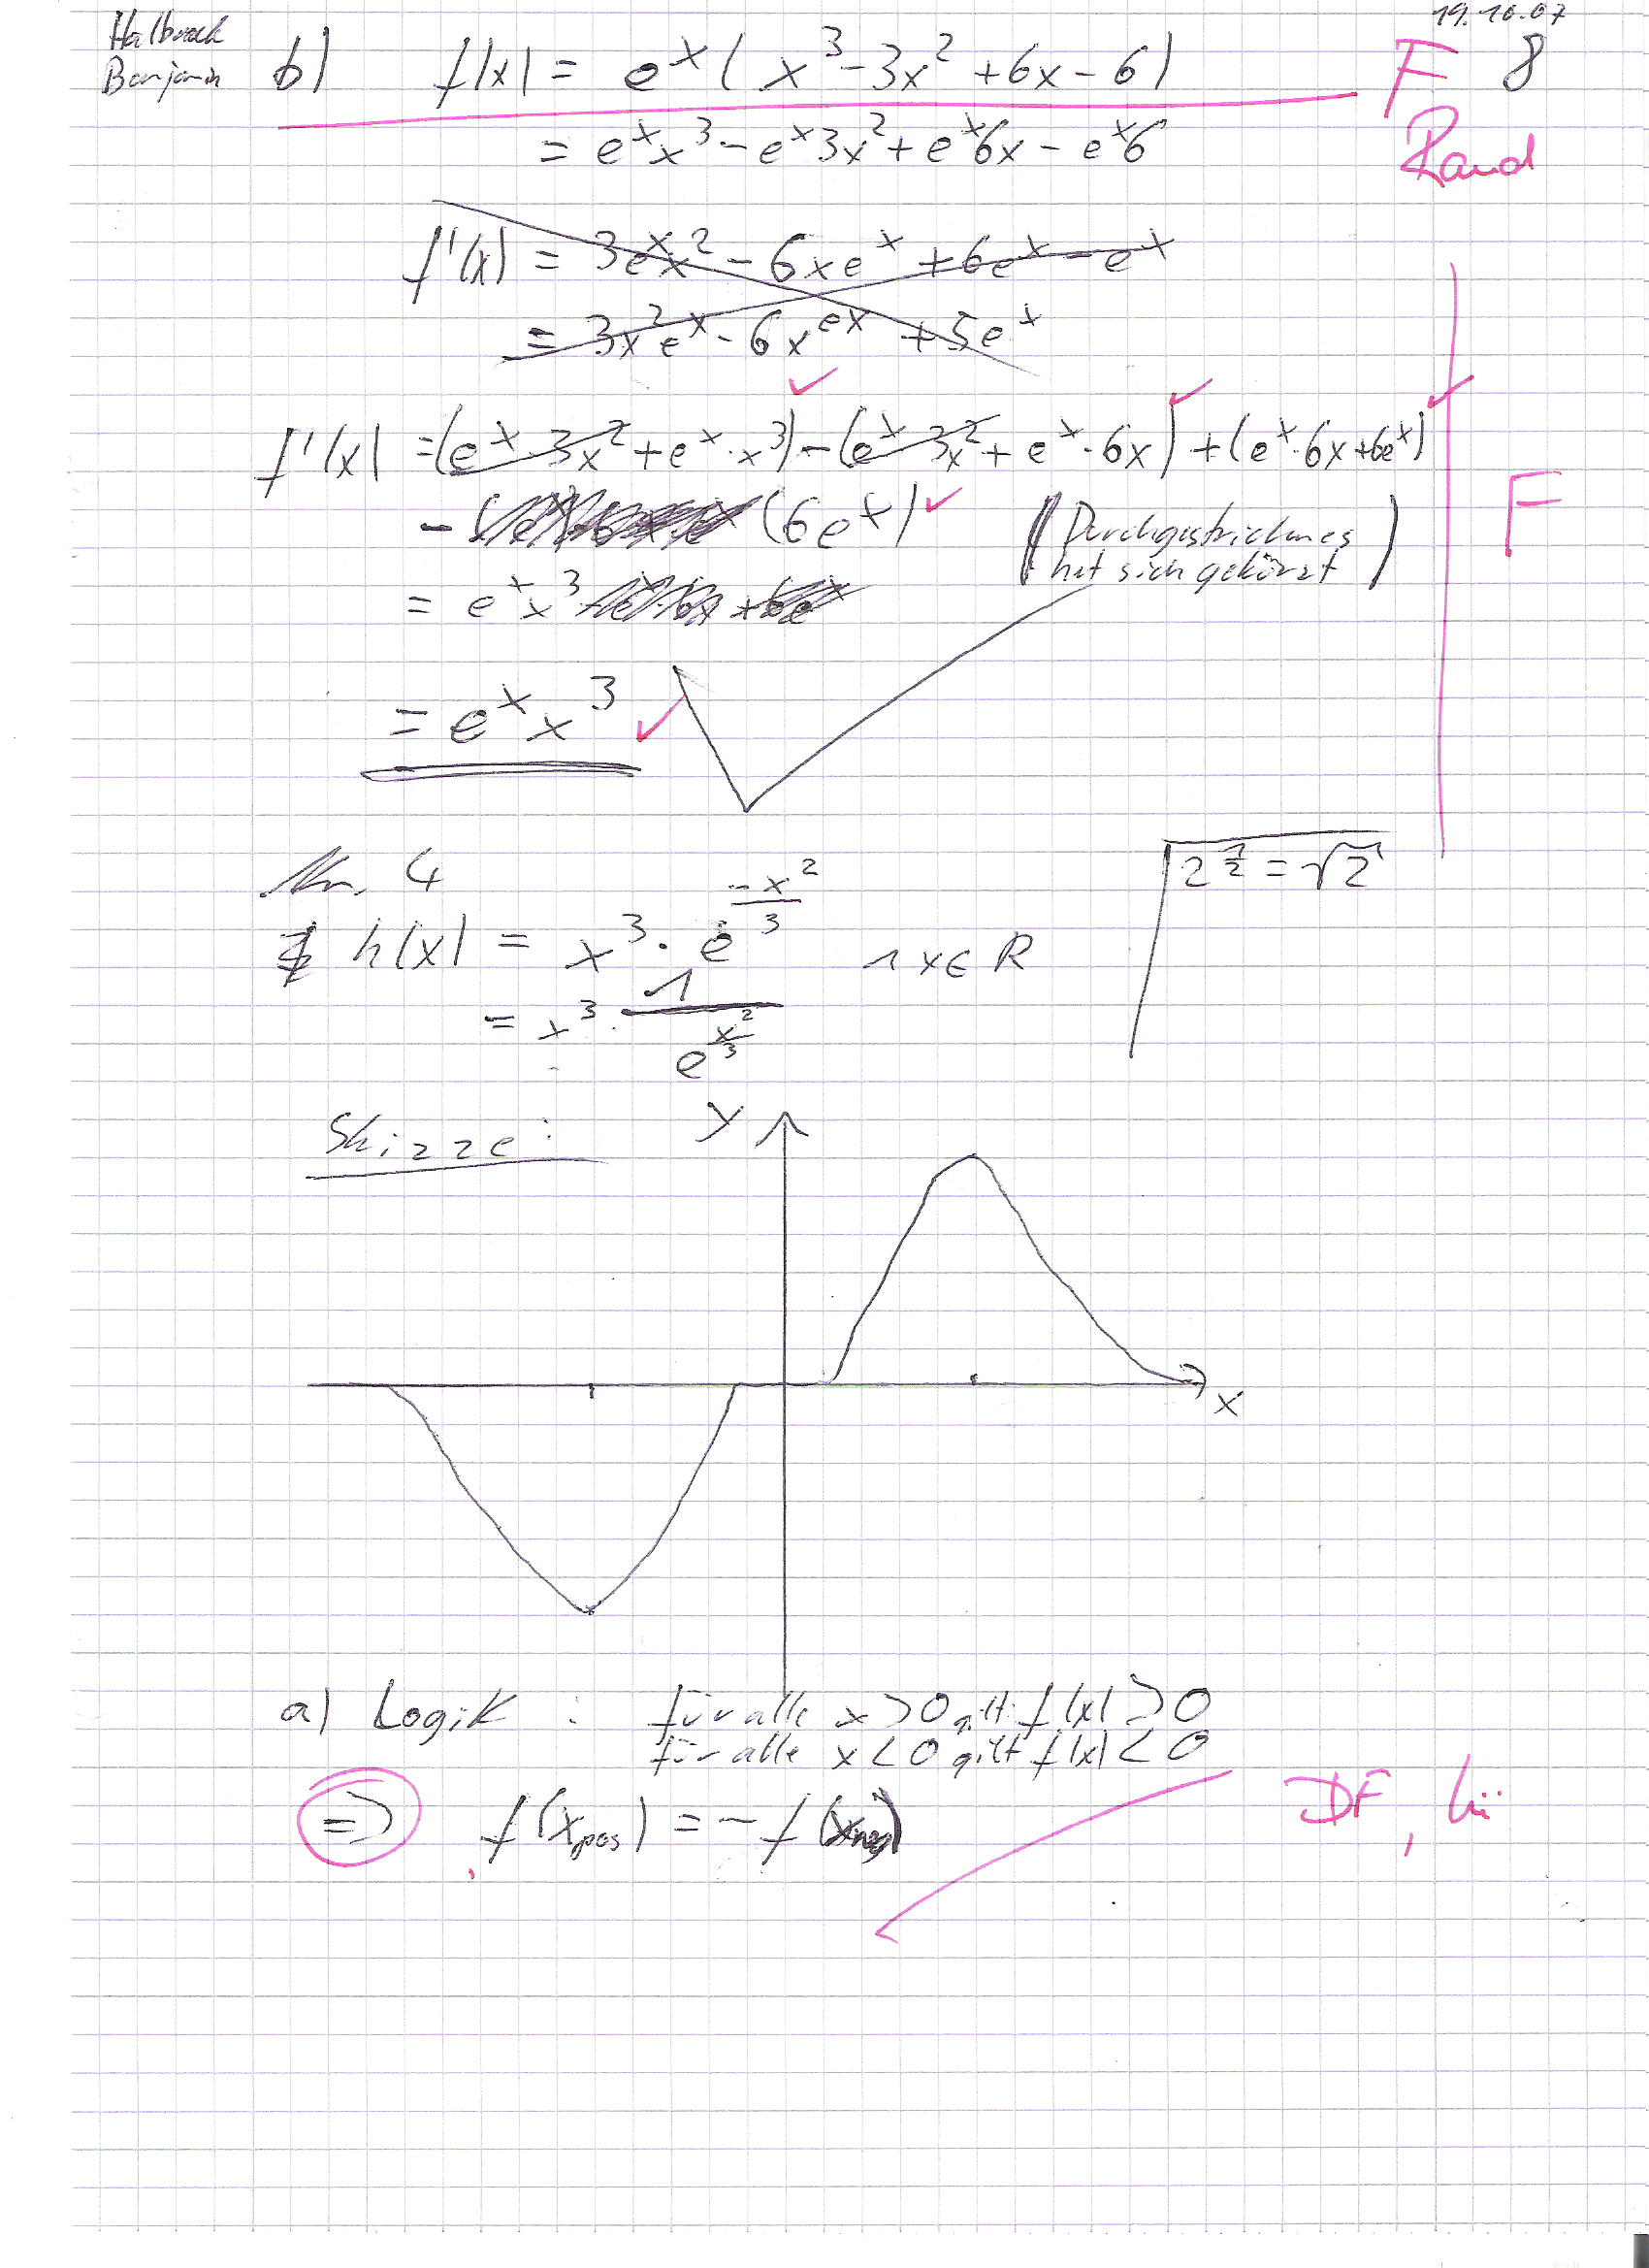 19.10.07
Halbrock
Benjamin
b) f(x) = e^x (x^3 - 3x^2 + 6x - 6) F 8
= e^x x^3 - e^x 3x^2 + e^x 6x - e^x 6 Rand
f'(x) = 3e^x x^2 - 6xe^x + 6e^x - e^x
= 3x^2 e^x - 6x^ex + 5e^x
f'(x) = (e^x · 3x^2 + e^x · x^3) - (e^x 3x^2 + e^x · 6x) + (e^x · 6x + 6e^x)
- (6e^x) (Durchgestrichnes F
hat sich gekürzt)
= e^x x^3
= e^x x^3
Nr. 4 2^1/2 = √2
h(x) = x^3 · e^(-x^2/3) 1 x∈R
= x^3 · 1/e^(x^2/3)
Skizze: y
x
a) Logik : für alle x > 0 gilt f(x) > 0
für alle x < 0 gilt f(x) < 0
=> f(x_pos) = - f(x_neg) DF,